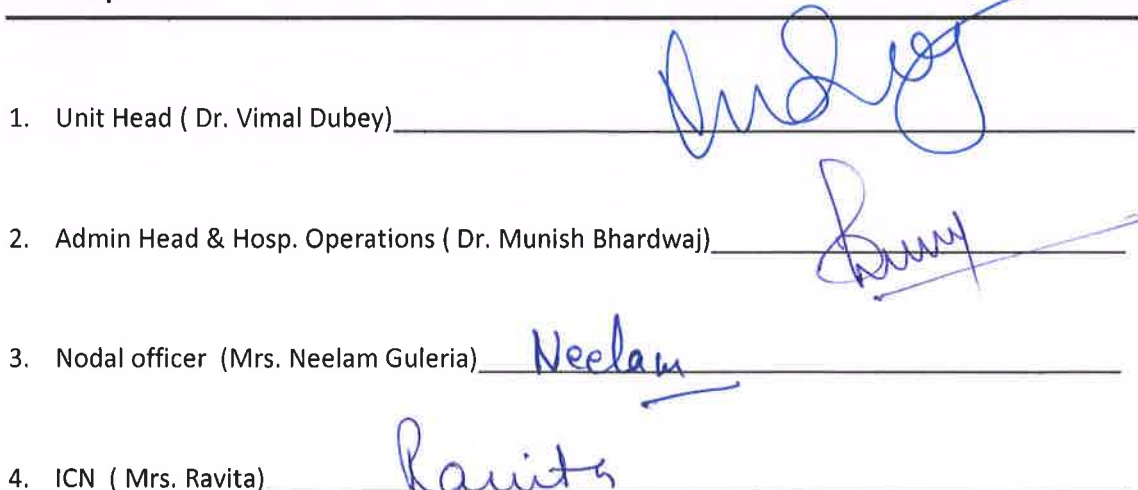 1. Unit Head ( Dr. Vimal Dubey)
2. Admin Head & Hosp. Operations ( Dr. Munish Bhardwaj)
3. Nodal officer (Mrs. Neelam Guleria) Neelam
4. ICN ( Mrs. Ravita) Ravita